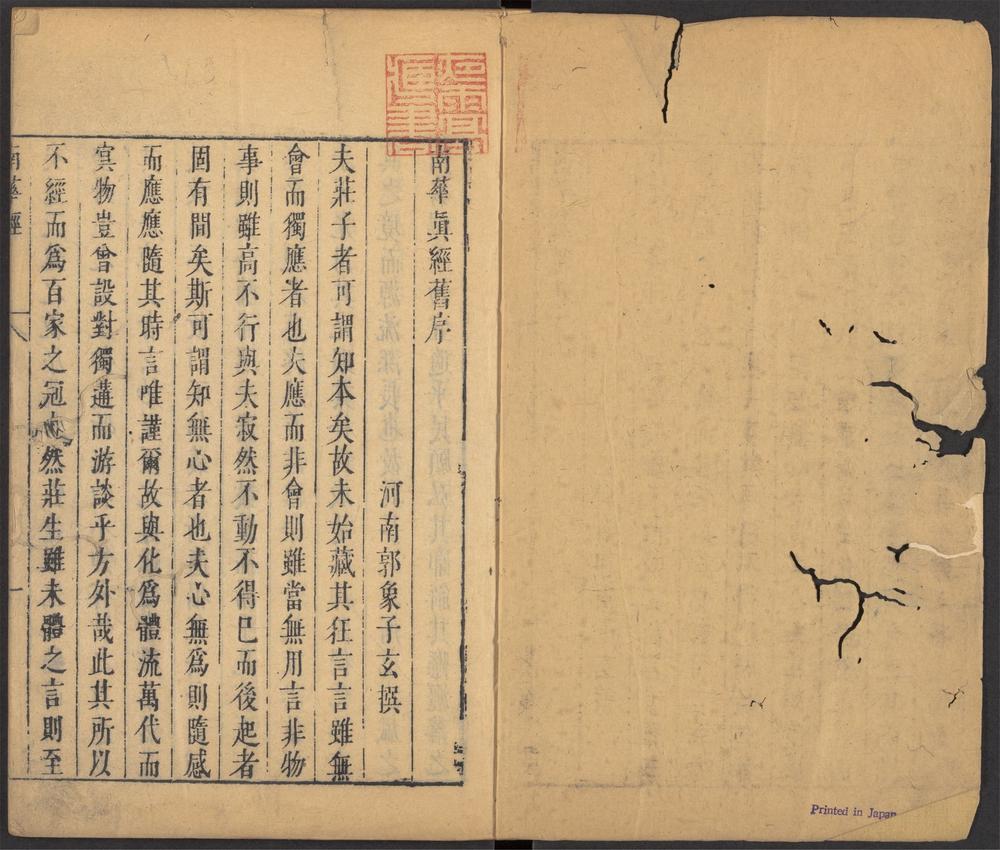 南華真經舊序
河南郭象子玄撰
夫莊子者可謂知本矣故未始藏其狂言言雖無
會而獨應者也夫應而非會則雖當無用言非物
事則雖高不行與夫寂然不動不得已而後起者
固有間矣斯可謂知無心者也夫心無為則隨感
而應應隨其時言唯謹爾故與化為體流萬代而
冥物豈曾設對獨遘而游談乎方外哉此其所以
不經而為百家之冠也然莊生雖未體之言則至
南華經
Printed in Japan